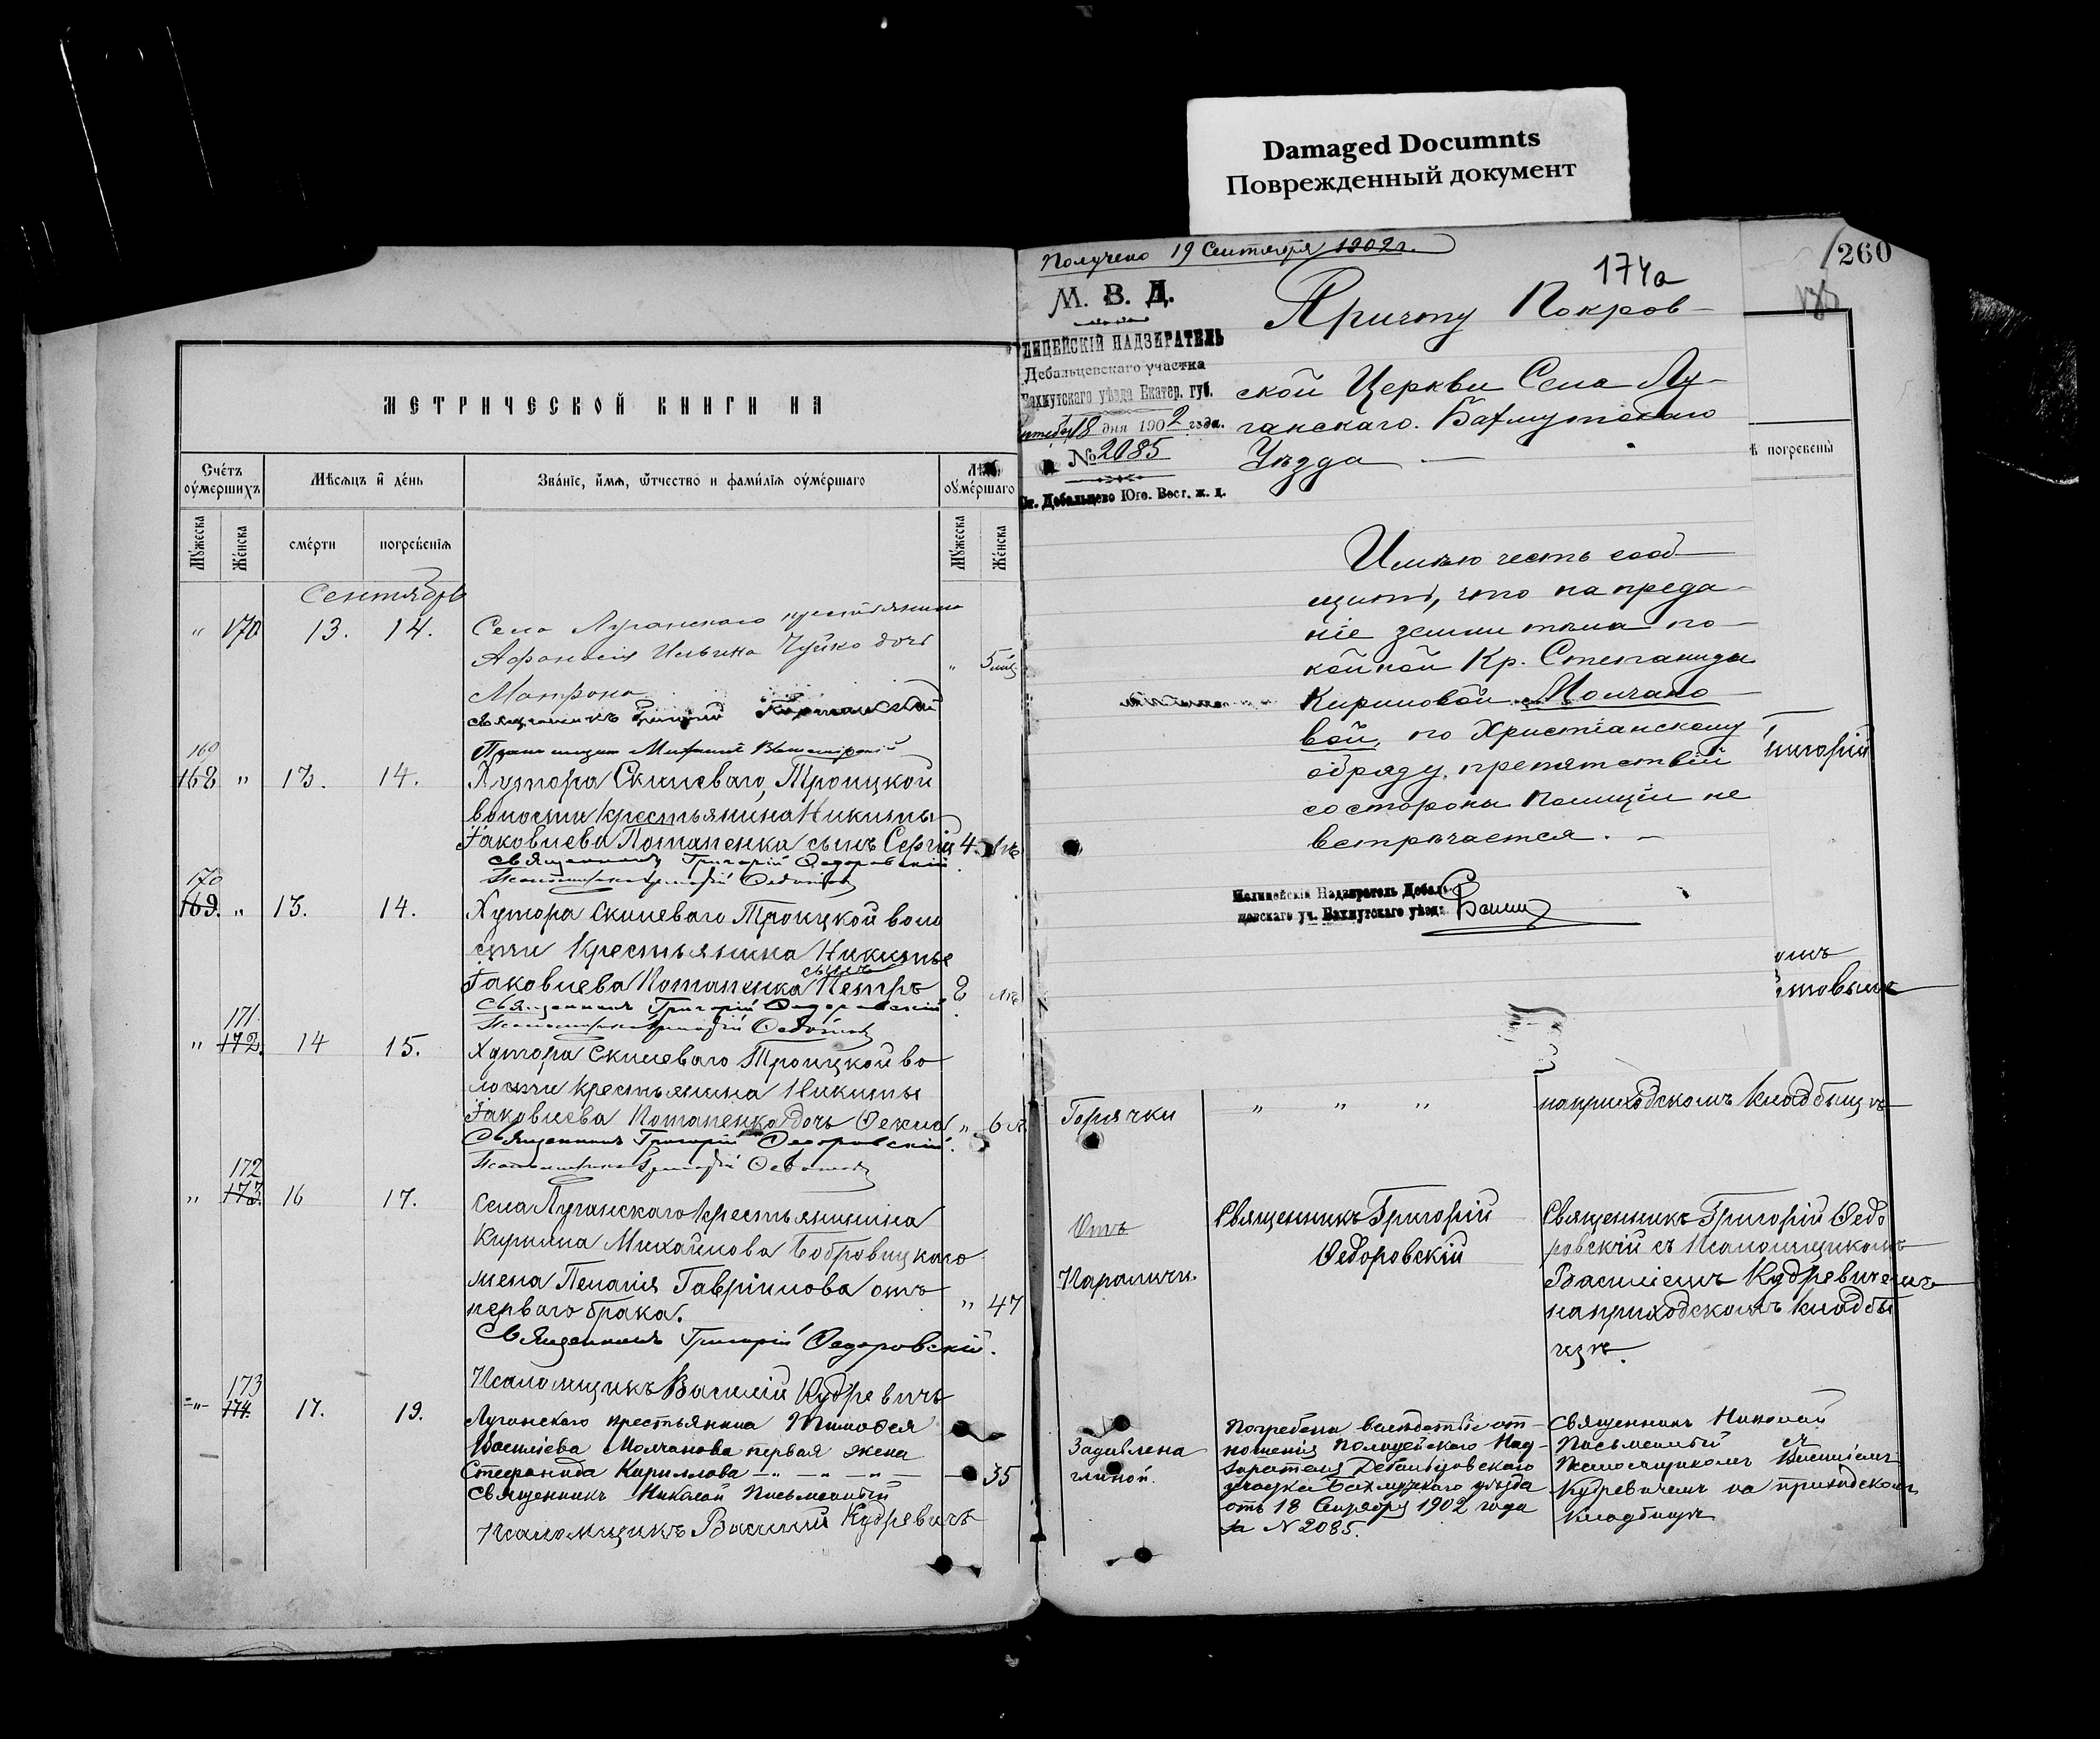 Damaged Documnts
Поврежденный документ
МЕТРИЧЕСКОЙ КНИГИ НА
Счетъ оумершихъ
Мѣсѧцъ и день
Званіе, имѧ, ѿтчество и фамиліѧ оумершаго
Лѣта оумершаго
Мужеска
Женска
смерти
погребеніѧ
Мужеска
Женска
Сентябрь
" 170 13. 14. Села Луганскаго крестьянина
Афанасія Ильина Чуйко дочь " 5 мѣс
Матрона
священникъ Григорій
169
168 " 13. 14. Хутора Скилеваго, Троицкой
волости крестьянина Никиты
Іаковлева Потапенка сынъ Сергій 4
Священникъ Григорій Федоровскій
170
169. " 13. 14. Хутора Скилеваго Троицкой воло
сти крестьянина Никиты
сынъ
Іаковлева Потапенка Петръ 2
Священникъ Григорій Федоровскій
171
" 172. 14 15. Хутора Скилеваго Троицкой во
лости крестьянина Никиты
Іаковлева Потапенка дочь " 6 л
Священникъ Григорій Федоровскій.
172
" 173. 16 17. Села Луганскаго крестьянина
Кирилла Михайлова Бобровицкаго
жена Пелагія Гавріилова отъ
перваго брака. " 47
Священникъ Григорій Федоровскій.
Псаломщикъ Василій Кудревичъ
173
-"- 174. 17. 19. Луганскаго крестьянина Тимофея
Василіева Молчанова первая жена
Стефанида Кириллова -"- -"- -"- 35
священникъ Николай Письменный
Псаломщикъ Василій Кудревичъ
Получено 19 Сентября 1902 г.
174а
260
М. В. Д.
ЛИЦЕЙСКІЙ НАДЗИРАТЕЛЬ
Дебальцевскаго участка
Бахмутскаго уѣзда Екатер. губ.
18 дня 1902 года.
№ 2085
Ст. Дебальцево Юго. Вост. ж. д.
Причту Покров-
ской Церкви Села Лу-
ганскаго. Бахмутскаго
Уѣзда —
ѣ погребены
Имѣю честь сооб-
щить, что на преда-
ніе земли тѣла по-
койной Кр. Степаниды
Кириловой Молчано-
вой, по Христіанскому
обряду, препятствій
со стороны Полиціи не
встрѣчается. —
Полицейскій Надзиратель Дебаль-
цевскаго уч. Бахмутскаго уѣзда
Горячки " " " на приходскомъ кладбищѣ
Отъ
Параличи.
Священникъ Григорій
Федоровскій
Священникъ Григорій Федо
ровскій съ Псаломщикомъ
Василіемъ Кудревичемъ
на приходскомъ кладби
щѣ.
Задавлена
глиной.
Погребена вслѣдствіе от-
ношенія Полицейскаго Над-
зирателя Дебальцовскаго
участка Бахмутскаго уѣзда
отъ 18 Сентября 1902 года
за N 2085.
Священникъ Николай
Письменный съ
Псаломщикомъ Василіемъ
Кудревичемъ на приходскомъ
кладбищѣ